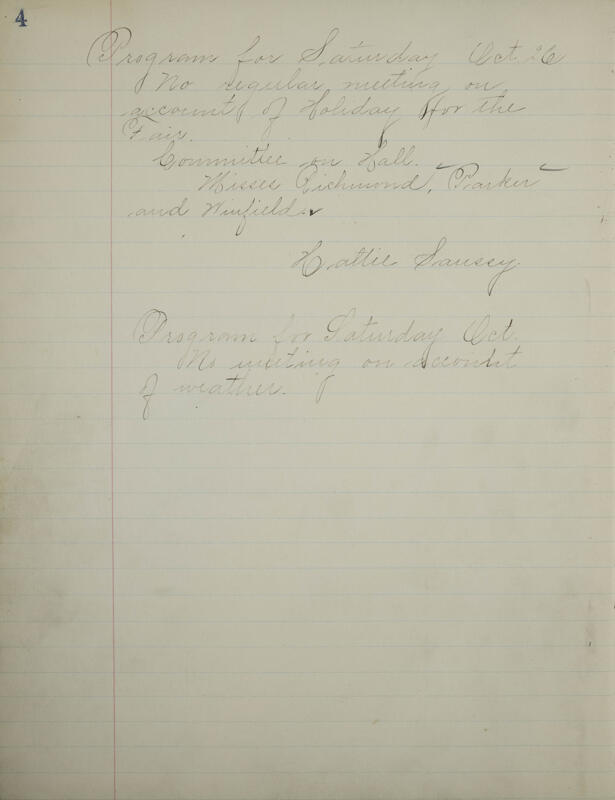 4
Program for Saturday Oct. 26
No regular meeting on
account of Holiday for the
Fair.
Committee on Hall.
Misses Richmond, Parker
and Winfield.
Hattie Saussy.
Program for Saturday Oct.
No meeting on account
of weather.